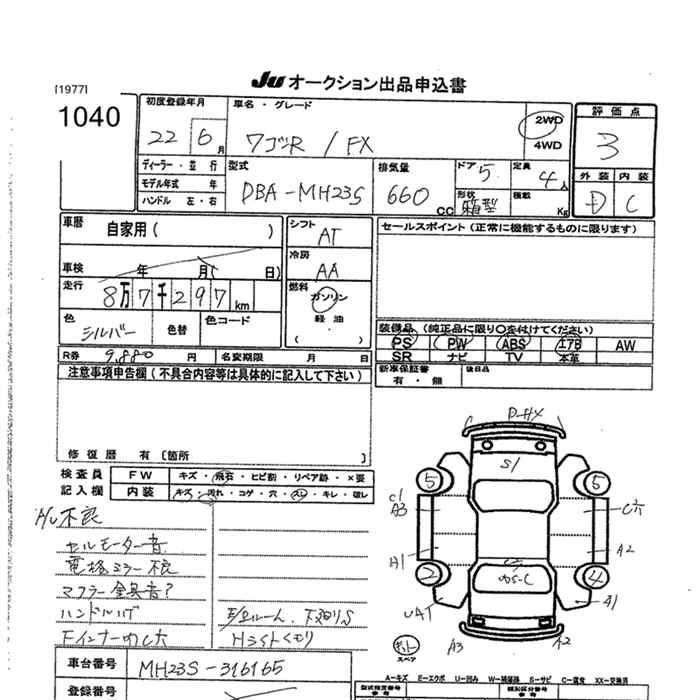 JU オークション出品申込書
[1977]
1040
初度登録年月
22 6月
車名・グレード
ワゴンR / FX
2WD
4WD
評価点
3
ディーラー・並行
モデル年式 年
ハンドル 左・右
型式
DBA-MH23S
排気量
660 CC
ドア
5
定員
4人
形状
箱型
積載
Kg
外装 内装
D C
車歴
自家用( )
シフト
AT
セールスポイント(正常に機能するものに限ります)
車検 年 月( 日)
冷房
AA
走行
8万7千297km
燃料
ガソリン
軽油
( )
色
シルバー
色替
色コード
装備品(純正品に限り○を付けてください)
PS PW ABS エアB AW
SR ナビ TV 本革
R券 9,880円 名変期限 月 日
新車保証書
有・無
後日品
注意事項申告欄(不具合内容等は具体的に記入して下さい)
修復歴 有〔箇所 〕
検査員
記入欄
FW
キズ・飛石・ヒビ割・リペア跡・×要
内装
キズ・汚れ・コゲ・穴・スレ・キレ・破レ
不良
セルモーター音
電格ミラー不良
マフラー金具音?
ハンドルハゲ
下廻りS
H3Sトくモリ
S1
5
5
C1
A3
C穴
A1
A2
2
4
UA1
A1
A3
A2
スペア
A=キズ E=エクボ U=凹み S=サビ C=腐食 XX=交換済
車台番号
MH23S-316165
登録番号
型式指定番号
参考
類別区分番号
参考